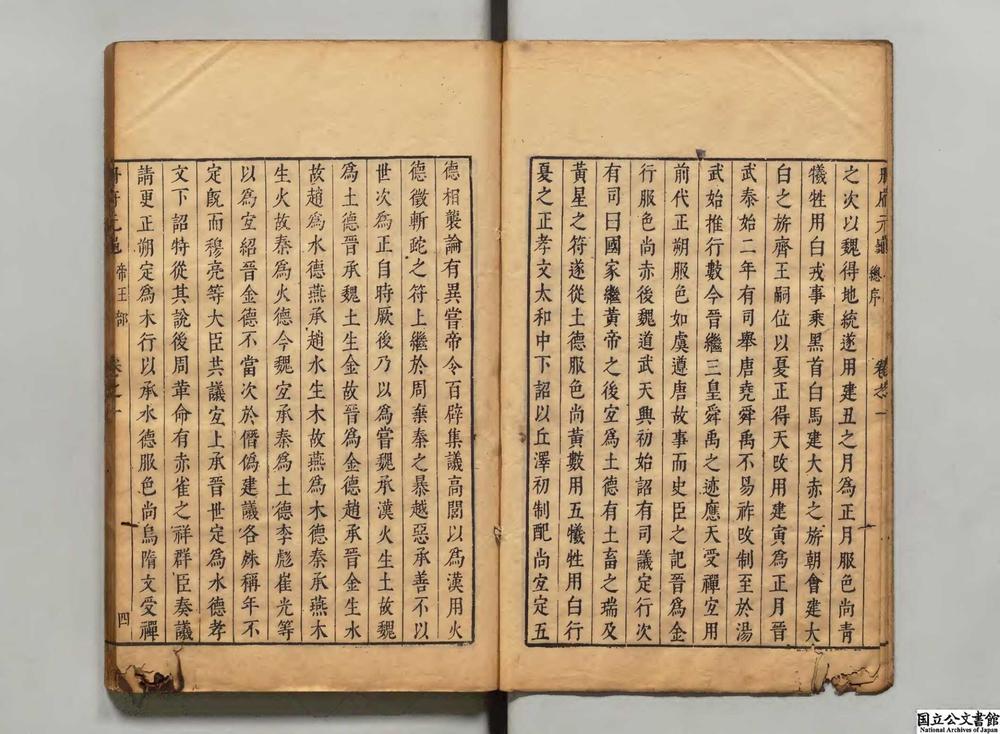 冊府元龜 總序 卷之一
之次以魏得地統遂用建丑之月為正月服色尚青
犧牲用白戎事乘黑首白馬建大赤之旂朝會建大
白之旂齊王嗣位以夏正得天攺用建寅為正月晉
武泰始二年有司舉唐堯舜禹不易祚攺制至於湯
武始推行數今晉繼三皇舜禹之迹應天受禪宜用
前代正朔服色如虞遵唐故事而史臣之記晉為金
行服色尚赤後魏道武天興初始詔有司議定行次
有司曰國家繼黃帝之後宜為土德有土畜之瑞及
黃星之符遂從土德服色尚黃數用五犧牲用白行
夏之正孝文太和中下詔以丘澤初制配尚宜定五
德相襲論有異嘗帝令百辟集議高閭以為漢用火
德徵斬蛇之符上繼於周棄秦之暴越惡承善不以
世次為正自時厥後乃以為嘗魏承漢火生土故魏
為土德晉承魏土生金故晉為金德趙承晉金生水
故趙為水德燕承趙水生木故燕為木德秦承燕木
生火故秦為火德今魏宜承秦為土德李彪崔光等
以為宜紹晉金德不當次於僭偽建議各殊稱年不
定旣而穆亮等大臣共議宜上承晉世定為水德孝
文下詔特從其說後周革命有赤雀之祥群臣奏議
請更正朔定為木行以承水德服色尚烏隋文受禪
冊府元龜 帝王部 卷之一 四
国立公文書館
National Archives of Japan